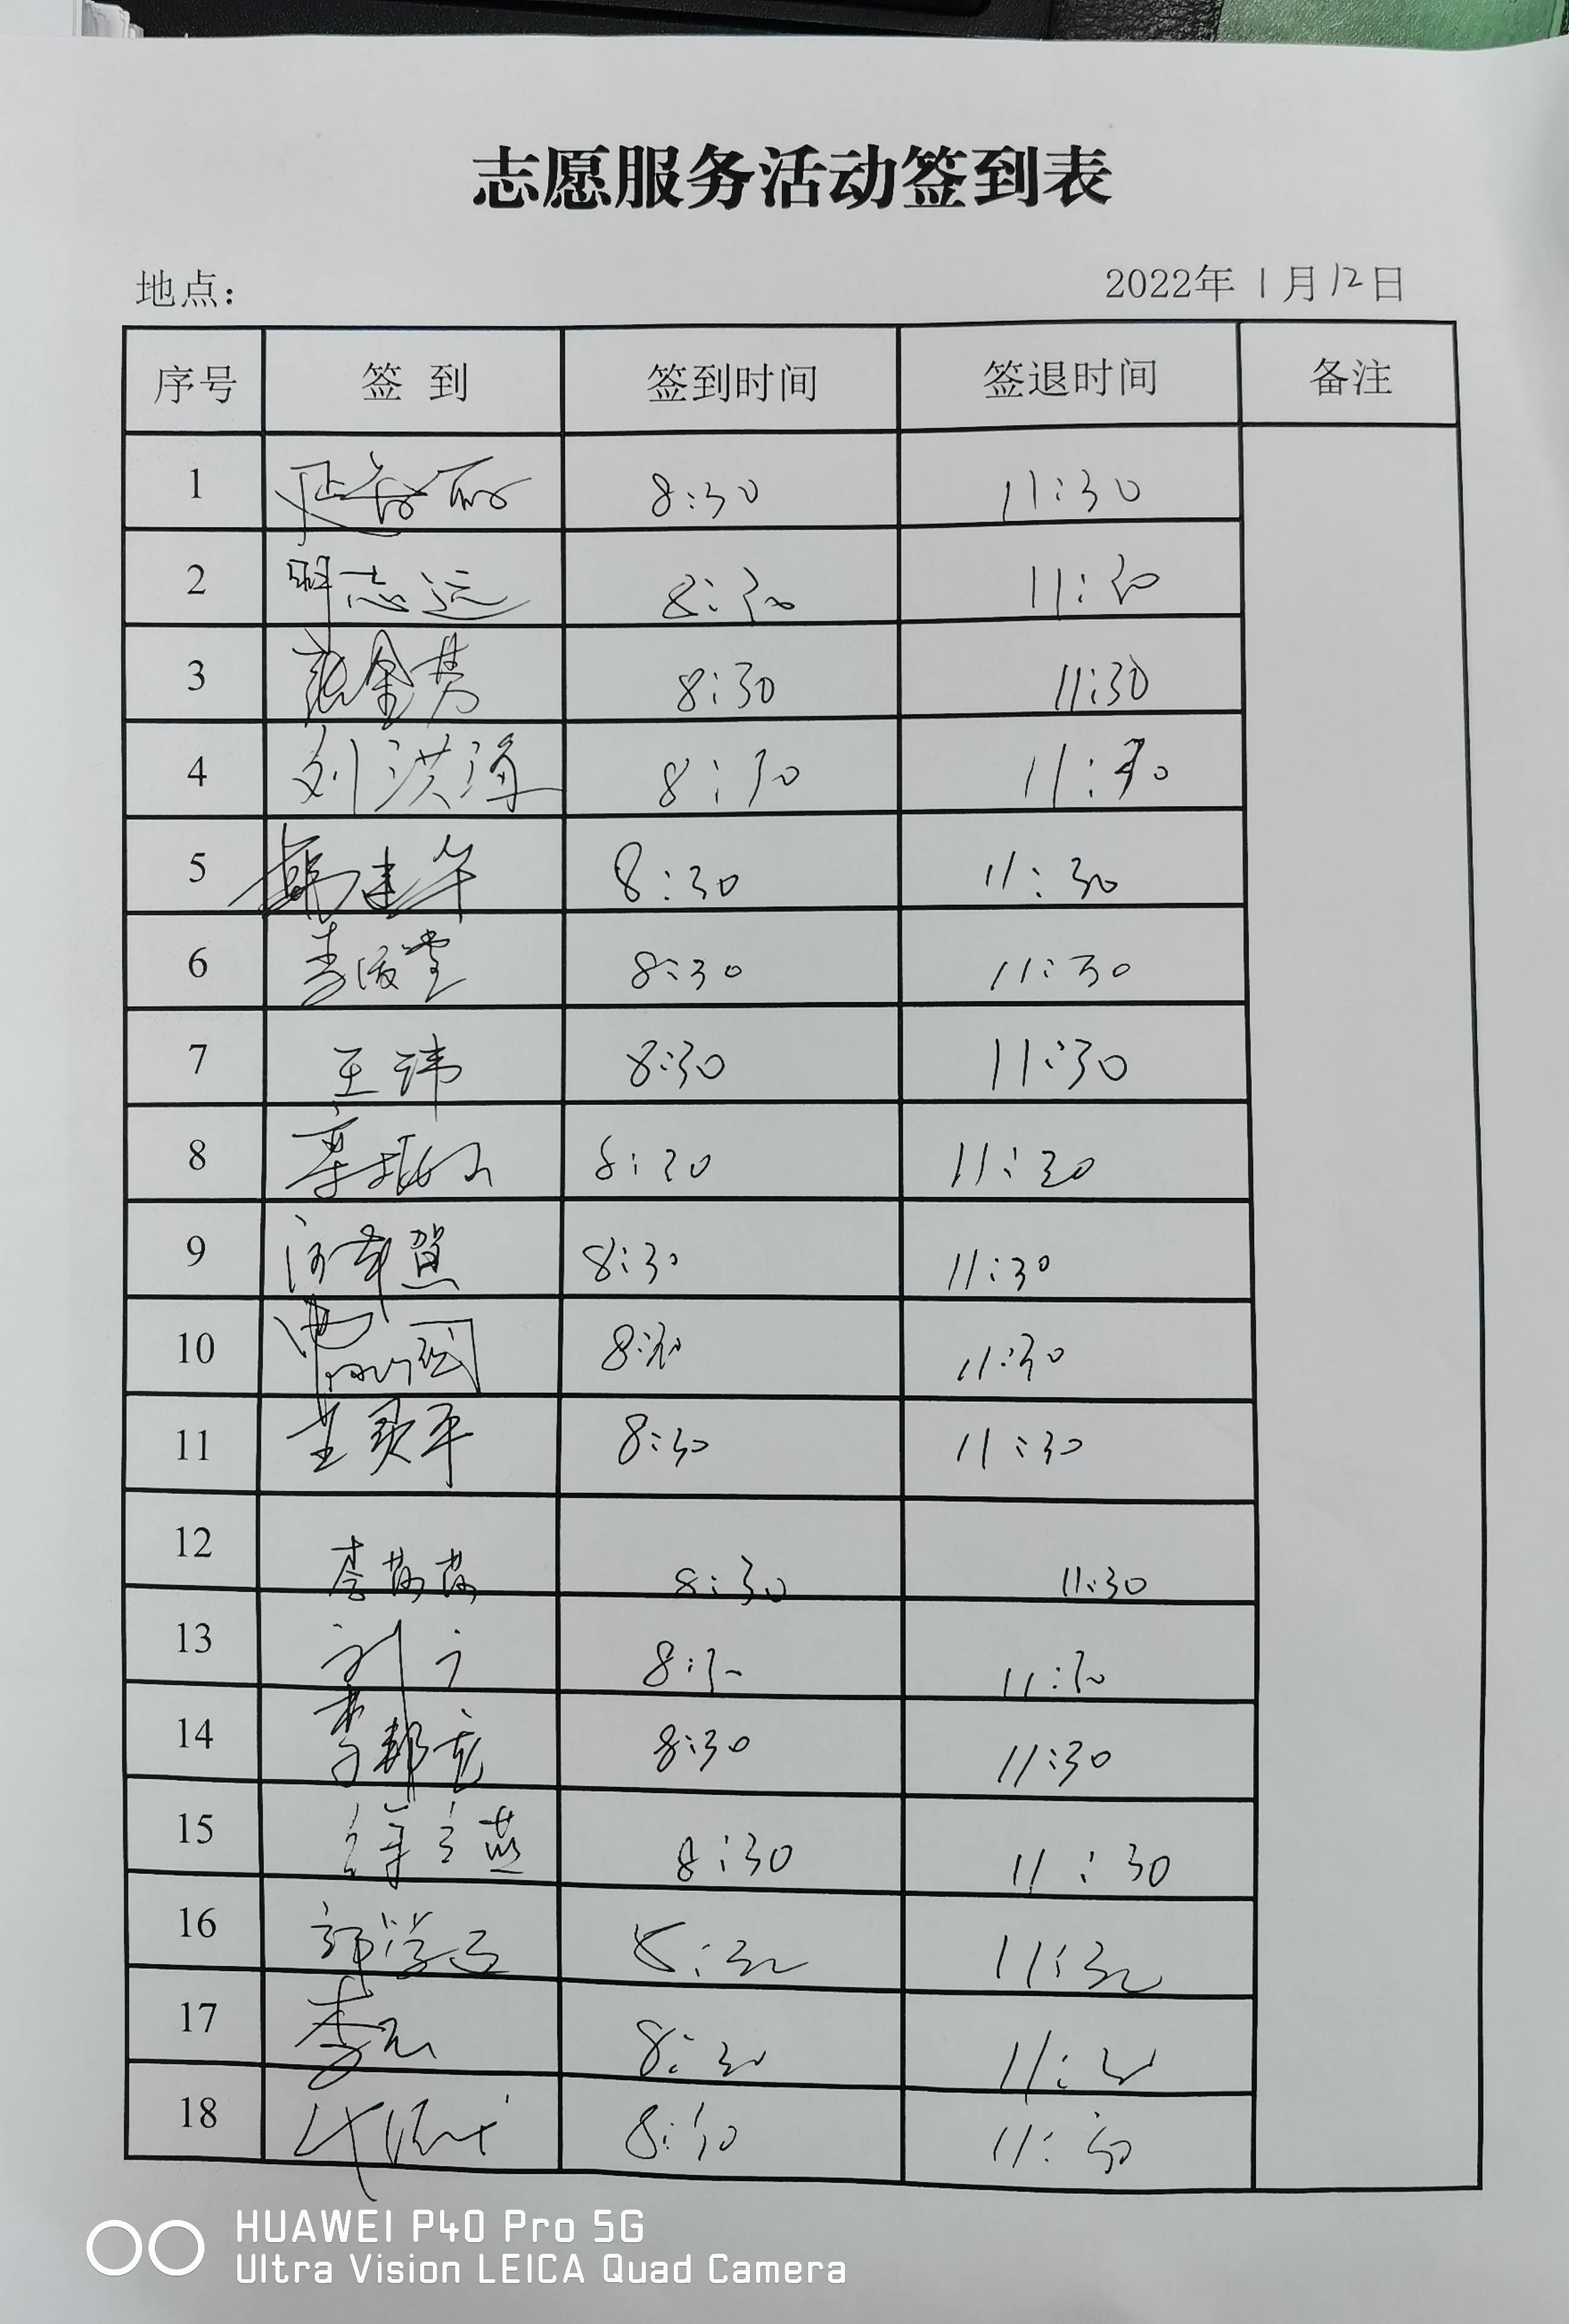 志愿服务活动签到表
地点： 2022年 1月12日
序号 签 到 签到时间 签退时间 备注
1 8:30 11:30
2 明志远 8:30 11:30
3 8:30 11:30
4 刘洪 8:30 11:30
5 韩建华 8:30 11:30
6 李 8:30 11:30
7 王玮 8:30 11:30
8 8:30 11:30
9 8:30 11:30
10 8:30 11:30
11 8:30 11:30
12 李茜茜 8:30 11:30
13 刘 8:30 11:30
14 李 8:30 11:30
15 徐立燕 8:30 11:30
16 8:30 11:30
17 李 8:30 11:30
18 8:30 11:30
HUAWEI P40 Pro 5G
Ultra Vision LEICA Quad Camera